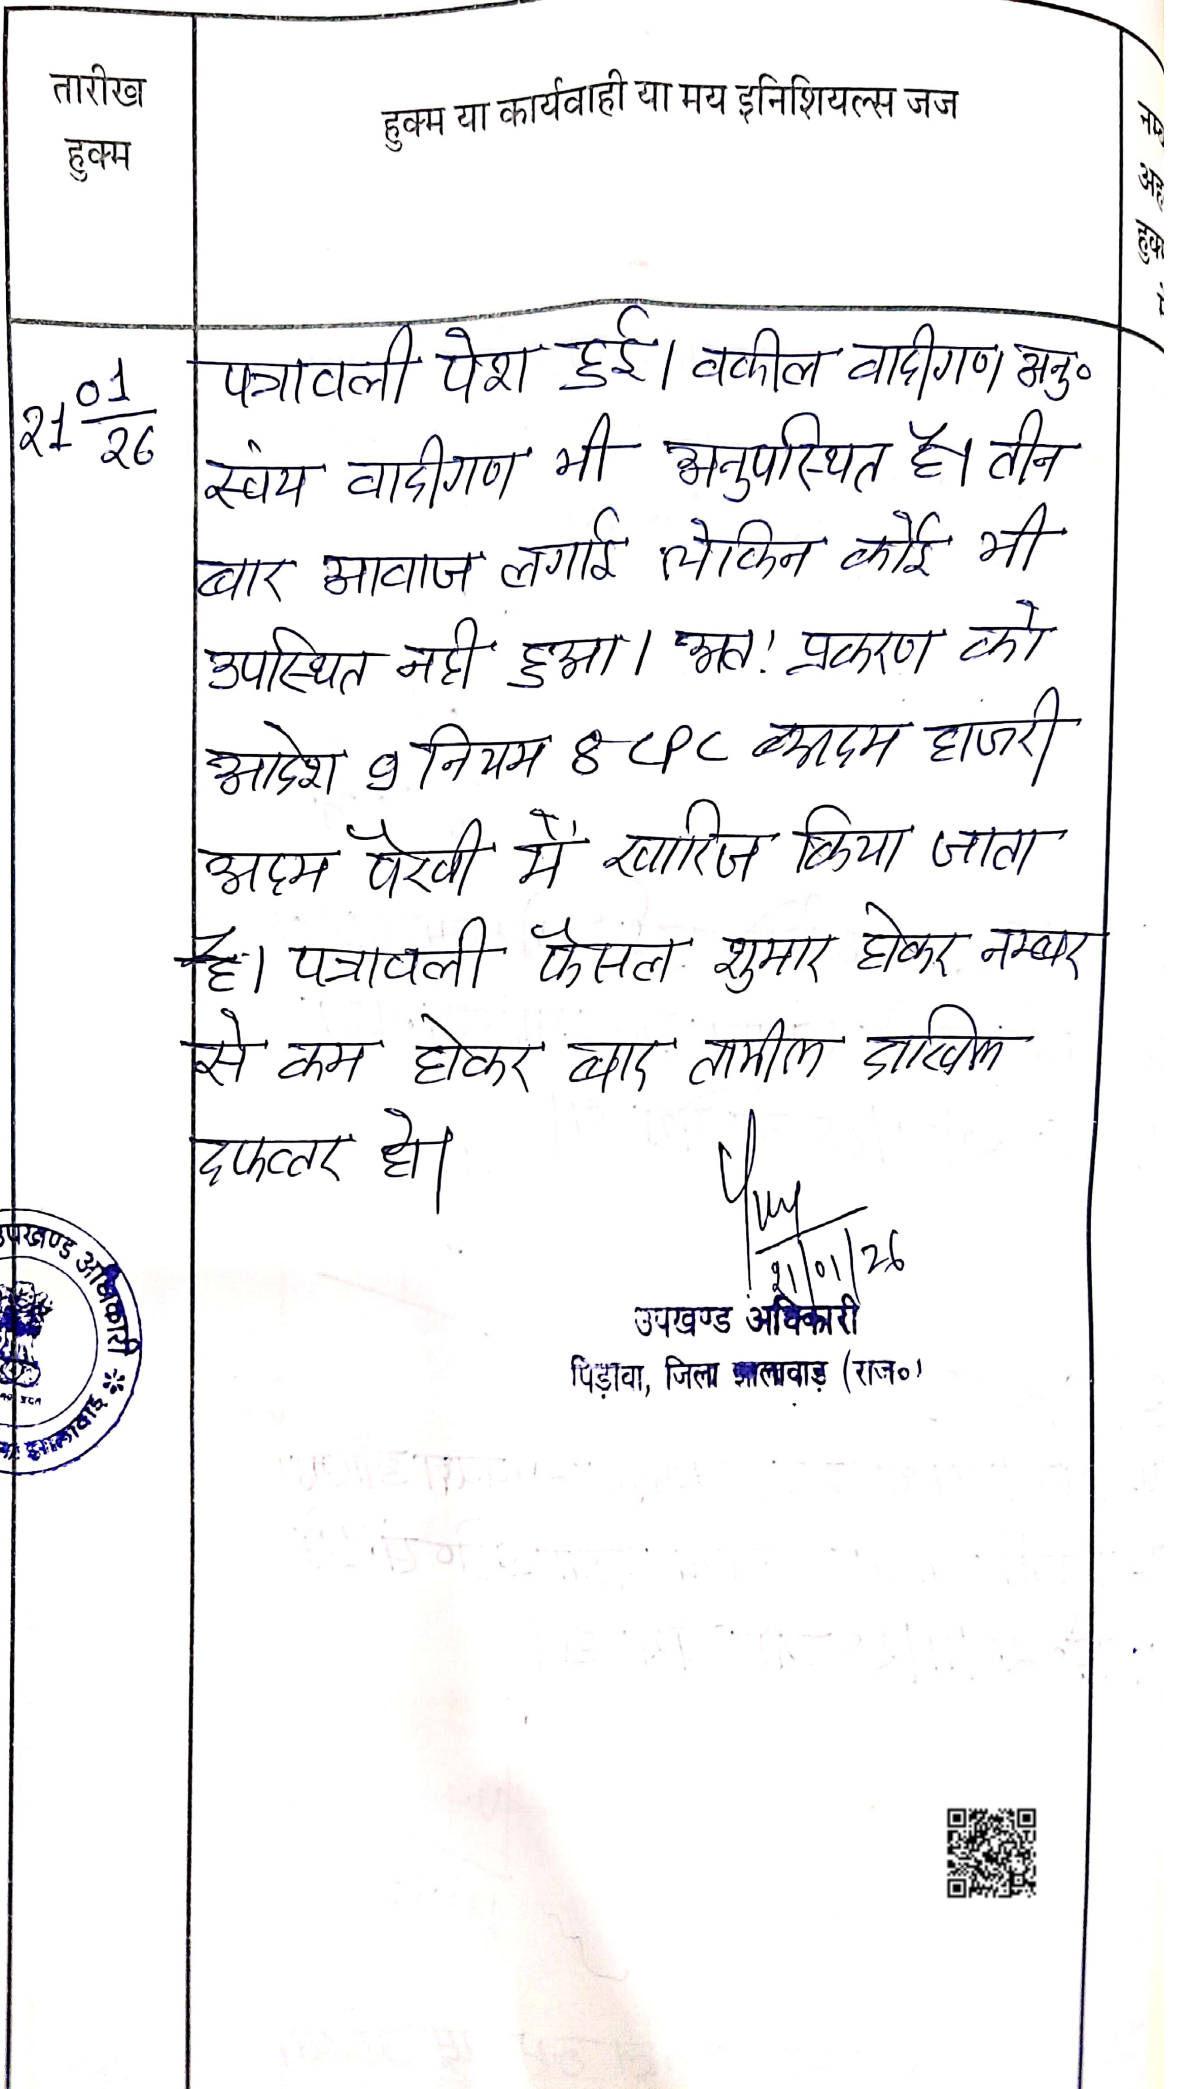 तारीख
हुक्म
हुक्म या कार्यवाही या मय इनिशियल्स जज
21 01/26
पत्रावली पेश हुई। वकील वादीगण अनु०
स्वंय वादीगण भी अनुपस्थित है। तीन
बार आवाज लगाई लेकिन कोई भी
उपस्थित नही हुआ। अतः प्रकरण को
आदेश 9 नियम 8 CPC बअदम हाजरी
अदम पैरवी में खारिज किया जाता
है। पत्रावली फैसल शुमार होकर नम्बर
से कम होकर बाद तामील दाखिल
दफ्तर हो।
21/01/26
उपखण्ड अधिकारी
पिड़ावा, जिला झालावाड़ (राज०)
उपखण्ड अधिकारी
झालावाड़